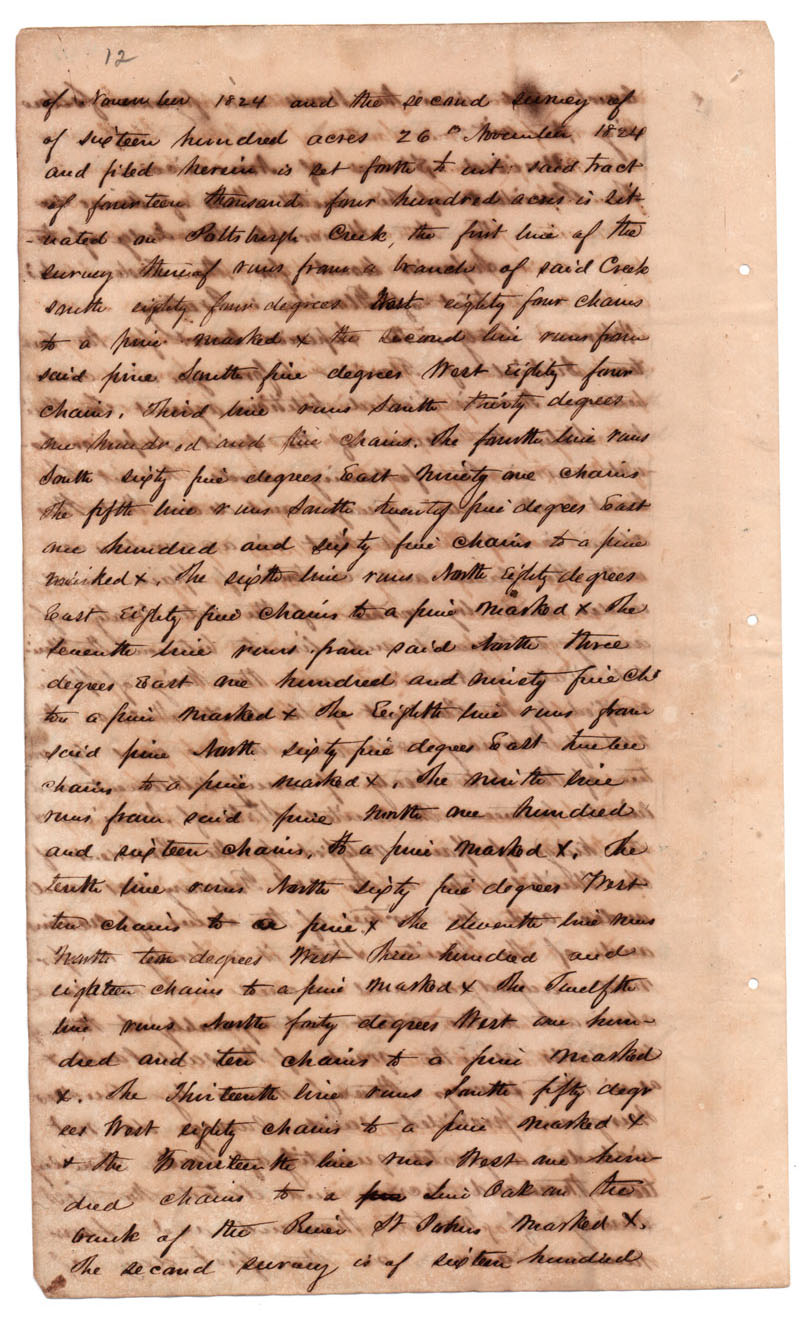 12
of November 1824 and the second survey of
of sixteen hundred acres 26th November 1824
and filed herein is set forth to wit said tract
of fourteen thousand four hundred acres is sit-
uated on Pottsburgh Creek, the first line of the
survey thereof runs from a branch of said Creek
south eighty four degrees West eighty four chains
to a pine marked x the second line runs from
said pine South five degrees West Eighty four
chains. Third line runs South thirty degrees
one hundred and five chains. The fourth line runs
South sixty five degrees East Ninety one chains
The fifth line runs South twenty five degrees East
one hundred and sixty five chains to a pine
marked x. The sixth line runs North Eighty degrees
East Eighty five chains to a pine marked x The
seventh line runs from said North three
degrees East one hundred and ninety five Chs
to a pine marked x The Eighth line runs from
said pine North sixty five degrees East twelve
chains to a pine marked x. The ninth line
runs from said pine north one hundred
and sixteen chains, to a pine marked x. The
tenth line runs North sixty five degrees West
ten chains to a pine x The eleventh line runs
North ten degrees West Three hundred and
eighteen chains to a pine marked x The Twelfth
line runs North forty degrees West one hun-
dred and ten chains to a pine marked
x. The Thirteenth line runs South fifty degr
ees West eighty chains to a pine marked x
+ the Fourteenth line runs West one hun-
dred chains to a live Oak on the
bank of the River St Johns marked x.
The second survey is of sixteen hundred